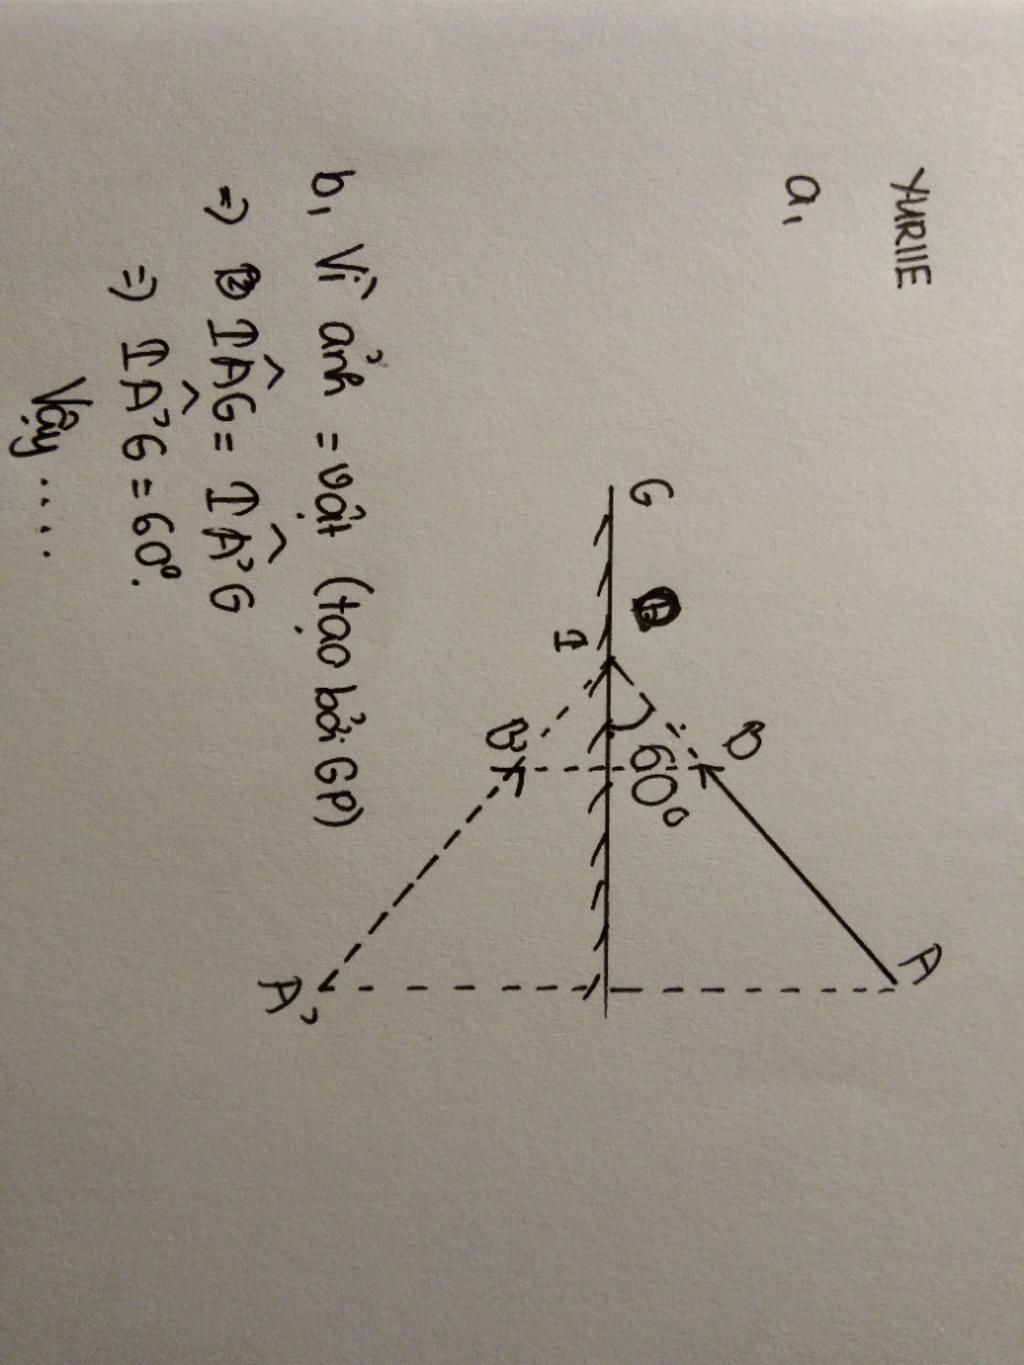 YURIIE
a,
G
I
B
60°
B'
A
A'
b, Vì ảnh = vật (tạo bởi GP)
=> IÂG = IÂ'G
=> IÂ'G = 60°.
Vậy ....